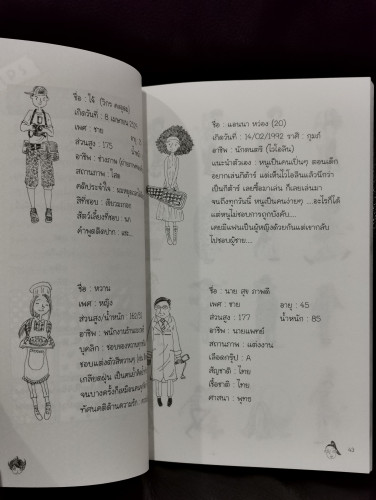 ชื่อ : โจ้ (วิกร
เกิดวันที่ : 8 เมษายน
เพศ : ชาย
ส่วนสูง : 175
อาชีพ : ช่างภาพ
สถานภาพ : โสด
คติประจำใจ :
สีที่ชอบ :
สัตว์เลี้ยงที่ชอบ : นก
คำพูดติดปาก :
ชื่อ : หวาน
เพศ : หญิง
ส่วนสูง/น้ำหนัก : 162/51
อาชีพ : พนักงานร้าน
บุคลิก : ชอบของหวานทุกชนิด
ชอบแต่งตัวสีหวานๆ
เกลียดฝุ่น เป็นคน
จนบางครั้งก็เหมือนคน
ทัศนคติด้านความรัก :
ชื่อ : แอนนา หว่อง (20)
เกิดวันที่ : 14/02/1992 ราศี : กุมภ์
อาชีพ : นักดนตรี (ไวโอลิน)
แนะนำตัวเอง : หนูเป็นคนเป็นๆ ตอนเด็ก
อยากเล่นกีต้าร์ แต่เห็นไวโอลินแล้วนึกว่า
เป็นกีต้าร์ เลยซื้อมาเล่น ก็เลยเล่นมา
จนถึงทุกวันนี้ หนูเป็นคนง่ายๆ ....อะไรก็ได้
แต่หนูไม่ชอบการถูกบังคับ...
เคยมีแฟนเป็นผู้หญิงด้วยกันแต่เขากลับ
ไปชอบผู้ชาย....
ชื่อ : นาย สุข ภาพดี
เพศ : ชาย อายุ : 45
ส่วนสูง : 177 น้ำหนัก : 85
อาชีพ : นายแพทย์
สถานภาพ : แต่งงาน
เลือดกรุ๊ป : A
สัญชาติ : ไทย
เชื้อชาติ : ไทย
ศาสนา : พุทธ